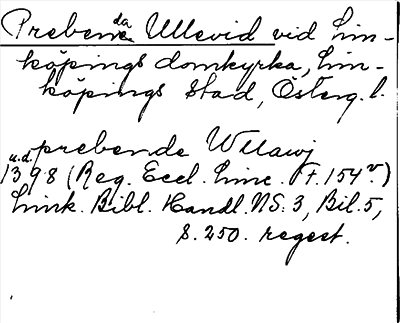 Prebenda Ullevid vid Lin-
köpings domkyrka, Lin-
köpings stad, Österg. l.
prebende Wllawj
u.d. 1398 (Reg. Eccl. Linc. f. 154 v.)
Link. Bibl. Handl. NS: 3, Bil. 5,
s. 250. regest.